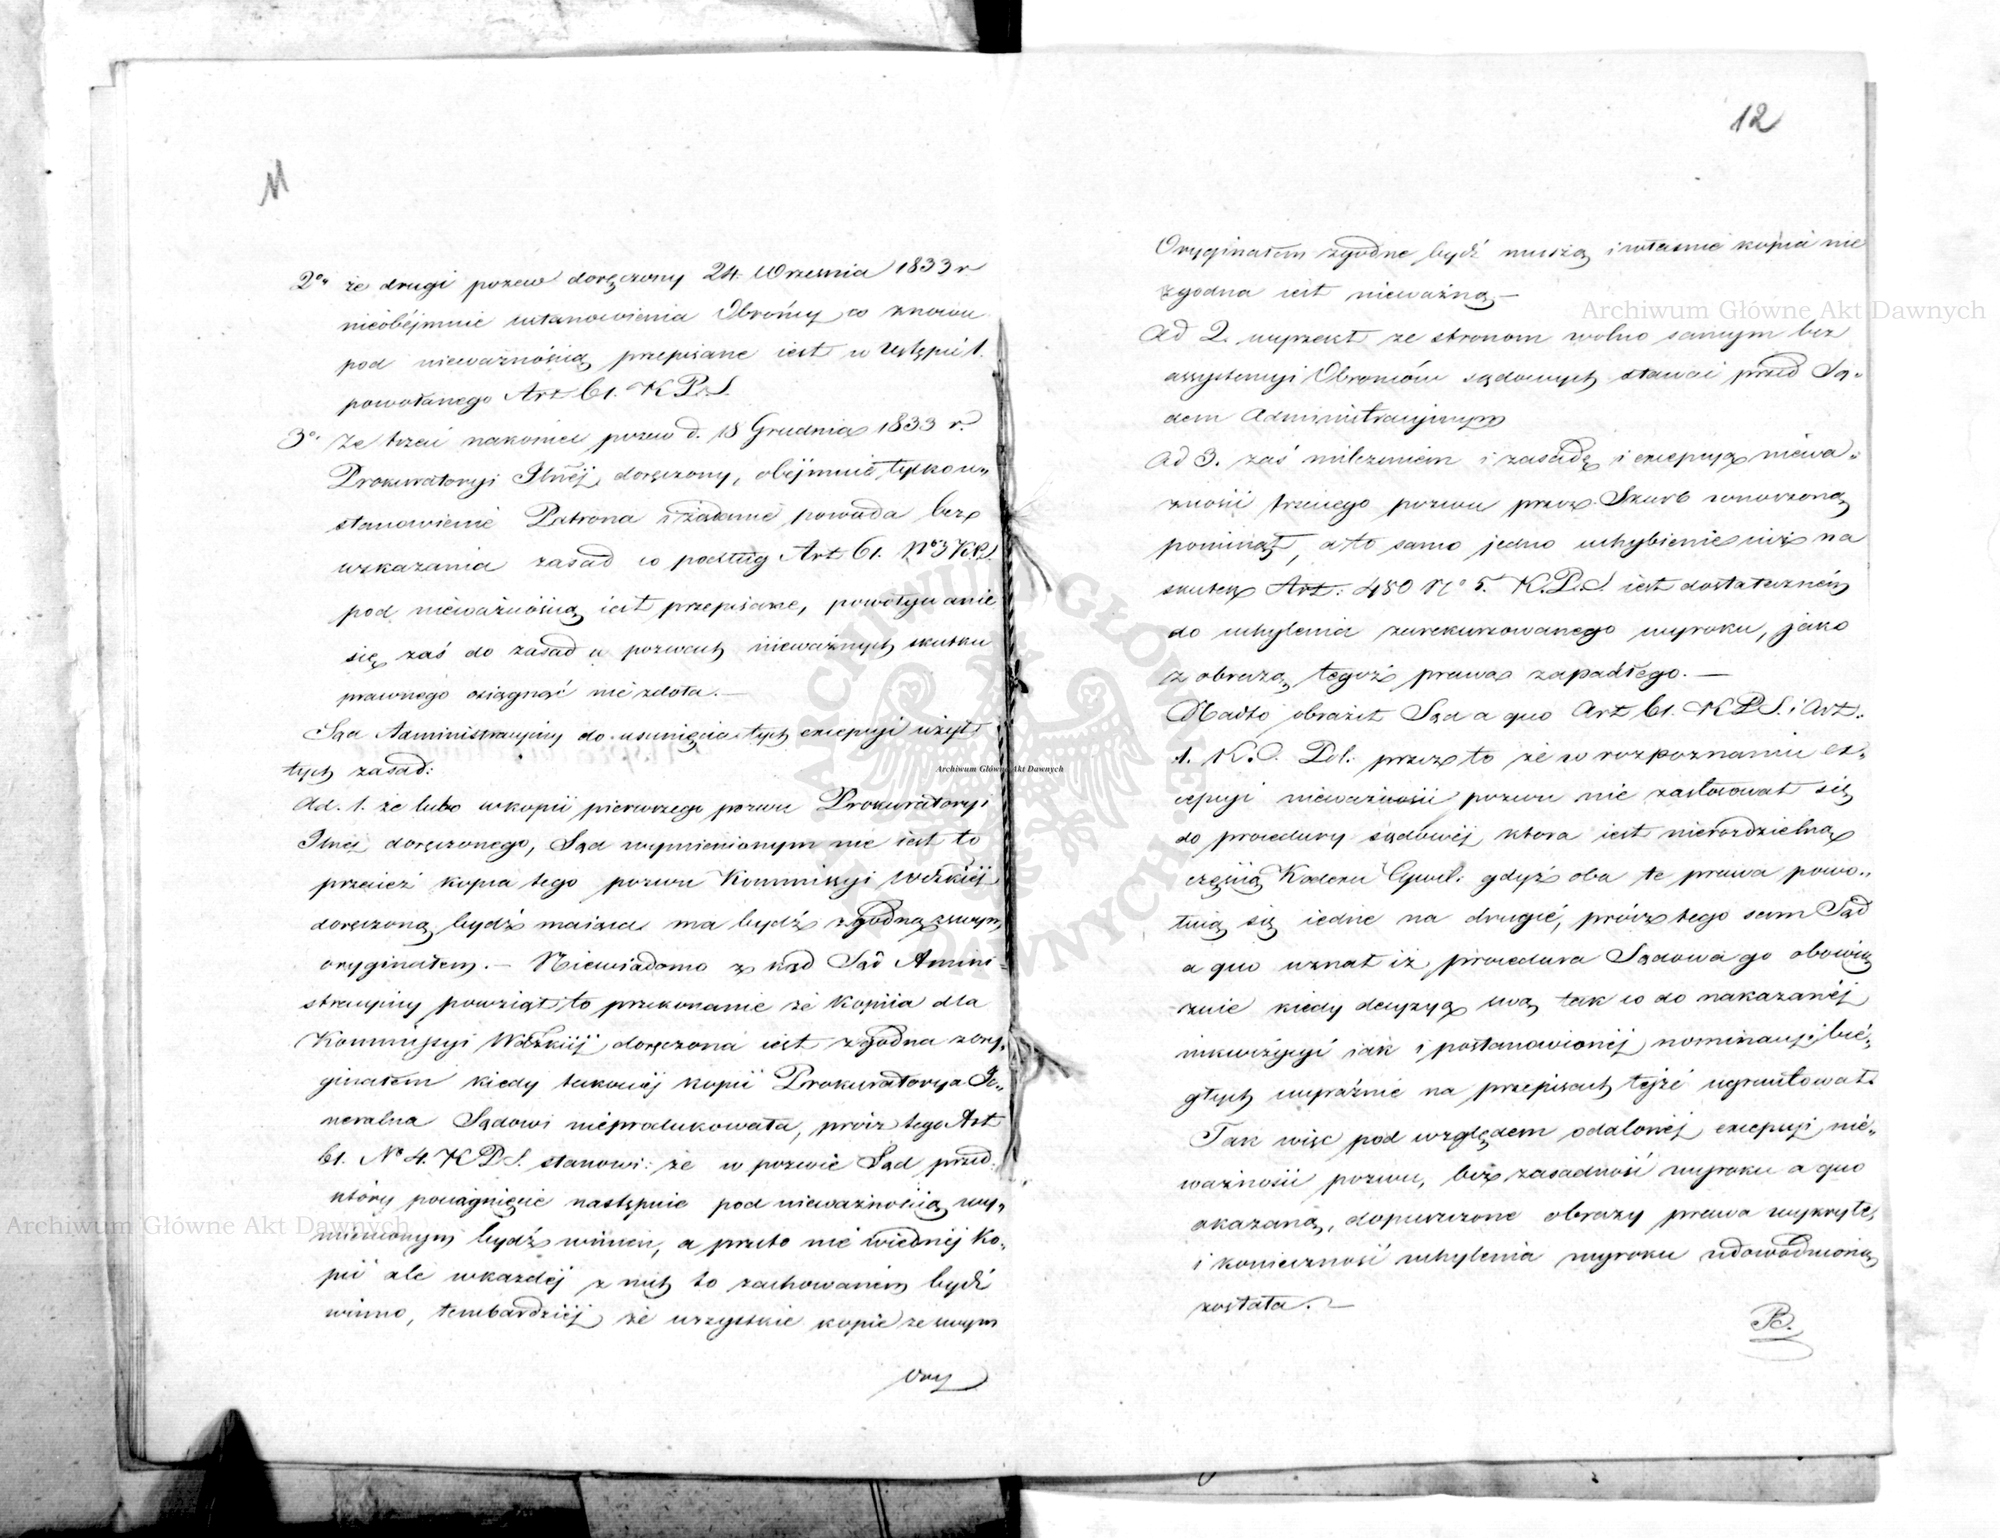 11
2o. że drugi pozew doręczony 24. Września 1833 r
nieobéjmuie ustanowienia Obrońcy co znowu
pod nieważnością przepisane iest w Ustępie 1.
powołanego Art 61. K.P.S.
3o. Że trzeci nakoniec pozew d. 18 Grudnia 1833 r.
Prokuratoryi Jlnéj doręczony, obéjmuie tylko u„
stanowienie Patrona i żądanie powoda bez
wskazania zasad co podług Art 61. No 3 K.P.S.
pod nieważnością iest przepisane, powoływanie
się zaś do zasad w pozwach nieważnych skutku
prawnego osiągnąć nie zdoła. —
Sąd Administracyiny do usunięcia tych excepcyi użył
tych zasad:
Ad. 1. że lubo w kopii pierwszego pozwu Prokuratoryi
Jlnéj doręczonego, Sąd wymienionym nie iest to
przecież kopia tego pozwu Kommissyi Wdzkiéj
doręczoną bydź maiąca ma bydź zgodną z swym
oryginałem. — Niewiadomo z kąd Sąd Admini-
stracyiny powziął to przekonanie że Kopiia dla
Kommissyi Wdzkiéj doręczona iest zgodna z ory„
ginałem kiedy takowéj kopii Prokuratorya Je„
neralna Sądowi nieprodukowała, prócz tego Art
61. No 4. K.P.S. stanowi: że w pozwie Sąd przed
który pociągnięcie następuie pod nieważnością wy„
mienionym bydź winien, a przeto nie w iednéj Ko„
pii ale w każdéj z nich to zachowaniem bydź
winno, tembardziéj że wszystkie kopie ze swym
Ory
12
Oryginałem zgodne bydź muszą i właśnie kopia nie
zgodna iest nieważną —
Ad 2. wyrzekł że stronom wolno samym bez
assystencyi Obrońców sądowych stawać przed Są„
dem Administracyinym
Ad 3. zaś milczeniem i zasadę i excepcyą niewa„
żności trzeciego pozwu przez Skarb wniesioną
pominął, a to samo jedno uchybienie iuż na
skutek Art: 480 No 5. K.P.S. iest dostateczném
do uchylenia zarekursowanego wyroku, jako
z obrazą tegoż prawa zapadłego. —
Nadto obraził Sąd a quo Art 61. K.P.S. i Art.
1. K.C. Pol. przez to że w rozpoznaniu ex„
cepcyi nieważności pozwu nie zastosował się
do procedury sądowéj która iest nierozdzielną
częścią Kodexu Cywil: gdyż oba te prawa powo„
łuią się iedne na drugié, prócz tego sam Sąd
a quo uznał iż procedura Sądowa go obowią
zuie kiedy decyzyą swą tak co do nakazanéj
inkwizycyi iak i postanowionéj nominacyi bie„
głych wyraźnie na przepisach téjże ugruntował.
Tak więc pod względem oddalonéj excepcyi nie„
ważności pozwu, bezzasadność wyroku a quo
okazaną, dopuszczone obrazy prawa wykryte,
i konieczność uchylenia wyroku udowodnioną
została. —
Archiwum Główne Akt Dawnych
Archiwum Główne Akt Dawnych
Archiwum Główne Akt Dawnych
ARCHIWUM GŁÓWNE AKT DAWNYCH